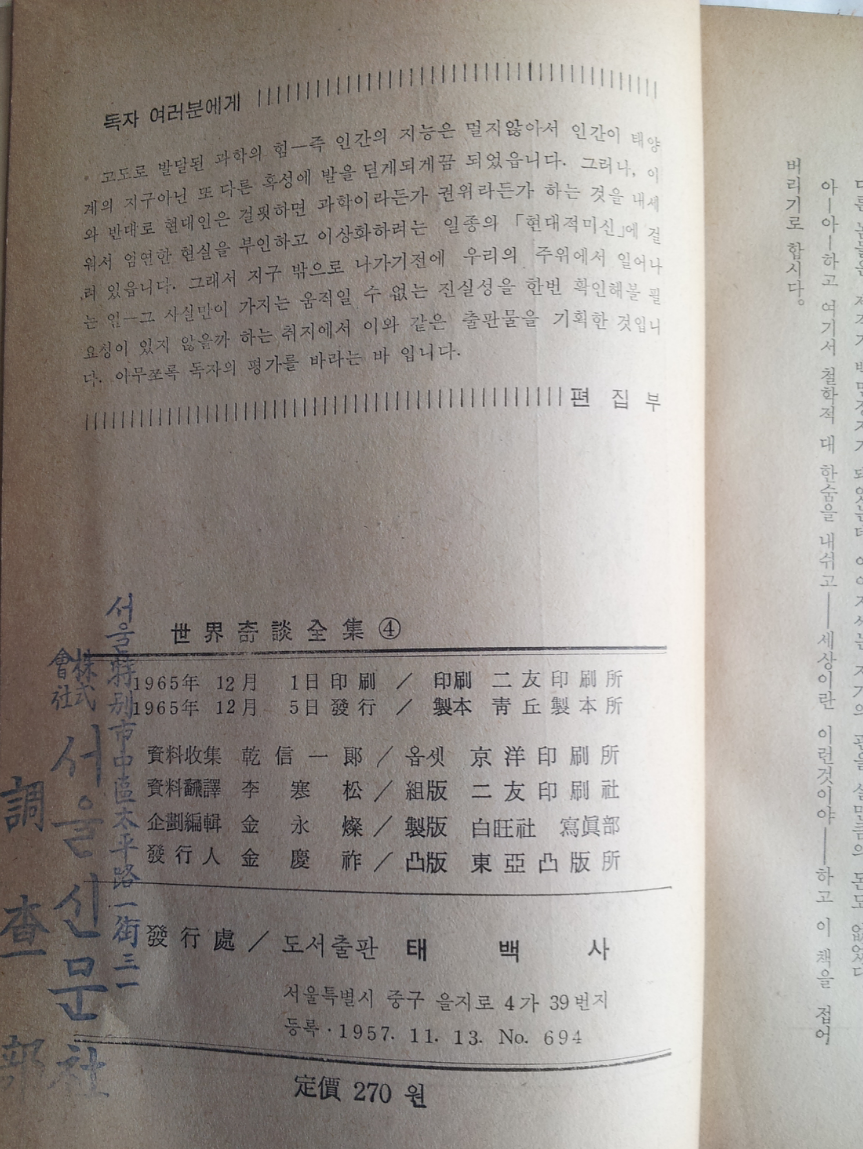 독자 여러분에게
고도로 발달된 과학의 힘—즉 인간의 지능은 멀지않아서 인간이 태양
계의 지구아닌 또 다른 혹성에 발을 딛게되게끔 되었읍니다. 그러나, 이
와 반대로 현대인은 걸핏하면 과학이라든가 권위라든가 하는 것을 내세
워서 엄연한 현실을 부인하고 이상화하려는 일종의 「현대적미신」에 걸
려 있읍니다. 그래서 지구 밖으로 나가기전에 우리의 주위에서 일어나
는 일—그 사실만이 가지는 움직일 수 없는 진실성을 한번 확인해볼 필
요청이 있지 않을까 하는 취지에서 이와 같은 출판물을 기획한 것입니
다. 아무쪼록 독자의 평가를 바라는 바 입니다.
편 집 부
世界奇談全集④
1965年 12月 1日 印刷 / 印刷 二友印刷所
1965年 12月 5日 發行 / 製本 靑丘製本所
資料收集 乾信一郞 / 옵셋 京洋印刷所
資料飜譯 李寒松 / 組版 二友印刷社
企劃編輯 金永燦 / 製版 白旺社 寫眞部
發行人 金慶祚 / 凸版 東亞凸版所
發行處 / 도서출판 태백사
서울특별시 중구 을지로 4가 39번지
등록·1957. 11. 13. No. 694
定價 270 원
서울特別市中區太平路一街三一
株式會社 서울신문社
調查部
아—아—하고 여기서 철학적 대 한숨을 내쉬고——세상이란 이런것이야——하고 이 책을 접어
버리기로 합시다.